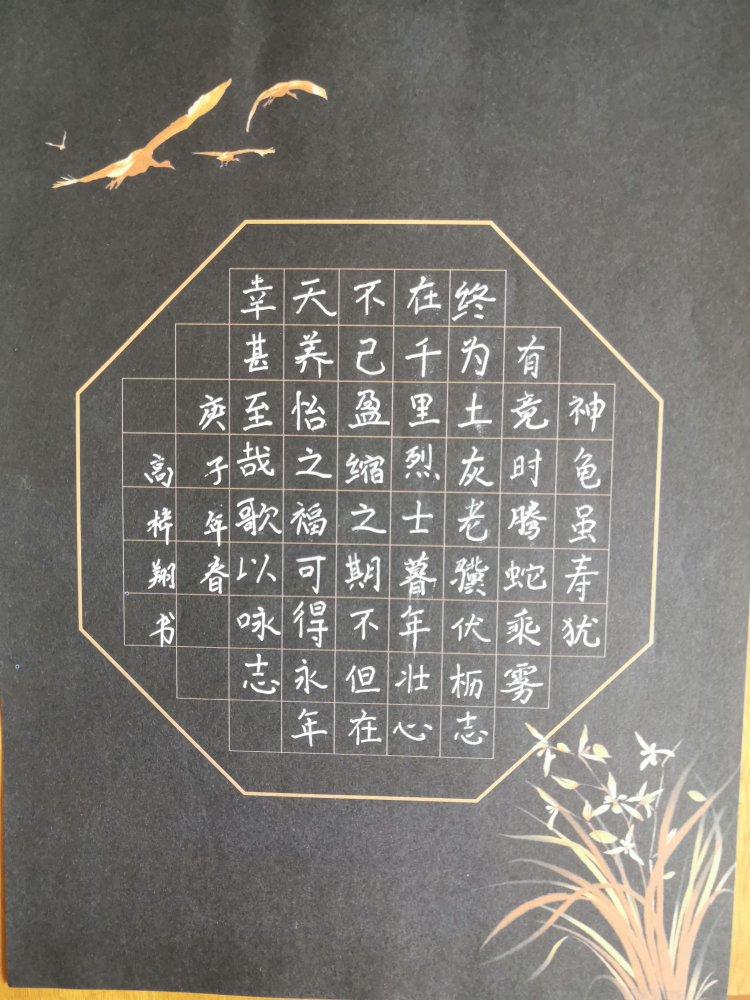 神龟虽寿犹
有竟时腾蛇乘雾
终为土灰老骥伏枥志
在千里烈士暮年壮心
不己盈缩之期不但在
天养怡之福可得永年
幸甚至哉歌以咏志
庚子年春
高梓翔书